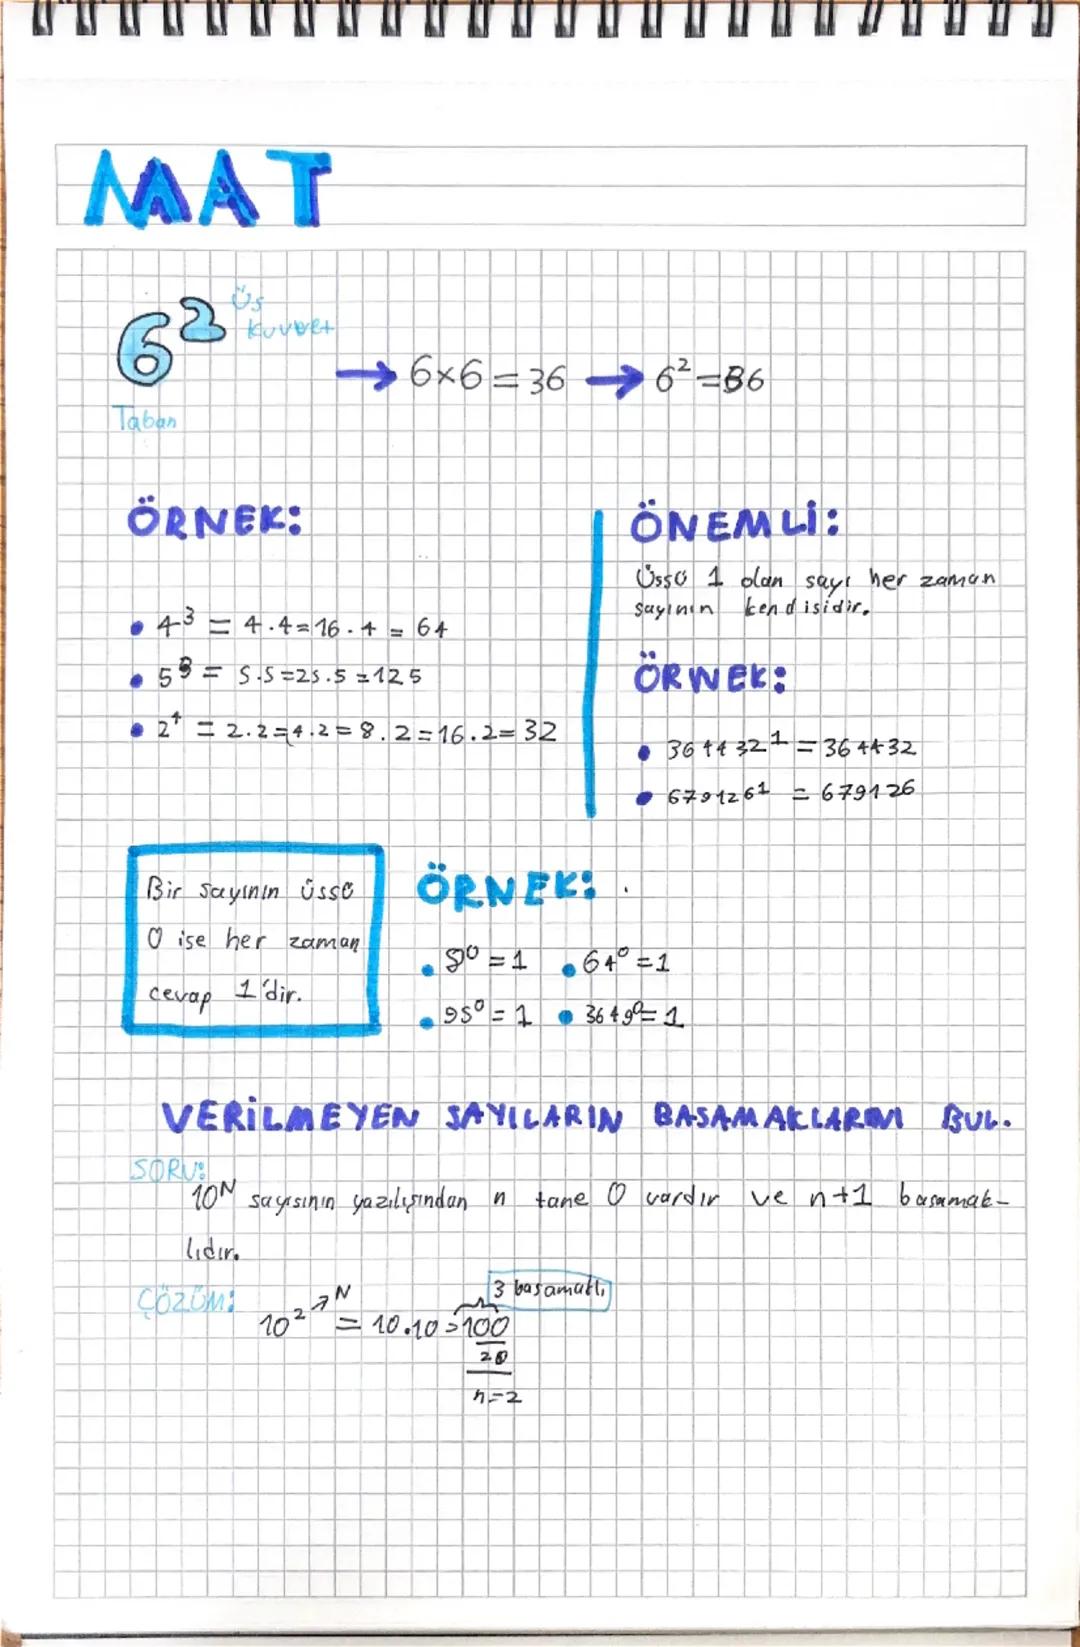 MAT
6² Üs
kuvvet
Taban
→ 6×6=36 → 6²=36
ÖRNEK:
• 4³ = 4.4=16.4 = 64
• 5³ = 5.5=25.5=125
• 2⁴ = 2.2=4.2=8.2=16.2=32
ÖNEMLİ:
Üssü 1 olan sayı her zaman
sayının kendisidir.
ÖRNEK:
• 364432¹ = 364432
• 679126¹ = 679126
Bir sayının üssü
0 ise her zaman
cevap 1'dir.
ÖRNEK:
• 8⁰=1 • 64⁰=1
• 95⁰=1 • 3649⁰=1
VERİLMEYEN SAYILARIN BASAMAKLARINI BUL.
SORU:
10ᴺ sayısının yazılışından n tane 0 vardır ve n+1 basamak-
lıdır.
ÇÖZÜM:
3 basamaklı
10² ↗ N = 10.10=100
20
n=2